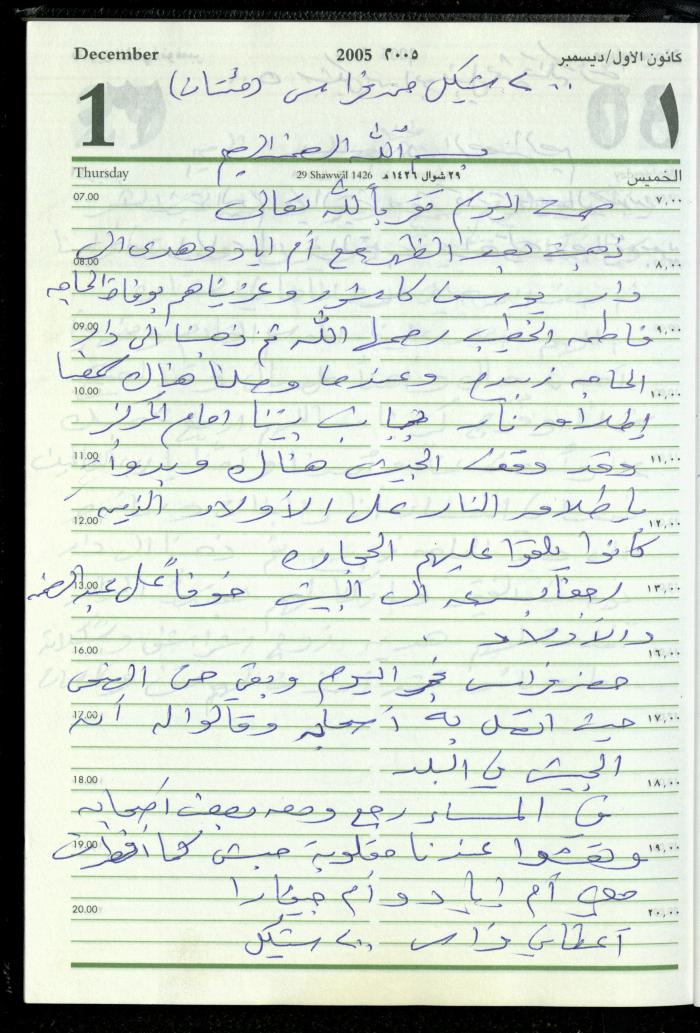 December 2005 ٢٠٠٥ كانون الاول/ديسمبر
٢٠٠ شيكل من فراس (مئتان)
1 ١
بسم الله الرحمن الرحيم
Thursday 29 Shawwāl 1426 ٢٩ شوال ١٤٢٦ هـ الخميس
07.00 صمت اليوم تقرباً لله تعالى ٧,٠٠
ذهبت بعد الظهر مع أم اياد وهدى الى
08.00 ٨,٠٠
دار يوسف كاشور وعزيناهم بوفاة الحاجه
09.00 فاطمه الخطيب رحمها الله ثم ذهبنا الى دار ٩,٠٠
الحاجه زبيده وعندما وصلنا هناك سمعنا
10.00 ١٠,٠٠
إطلاق نار بيتنا امام المركز
11.00 وقد وقف الجيش هناك وبدوأ ١١,٠٠
باطلاق النار على الأولاد الذين
12.00 ١٢,٠٠
كانوا يلقوا عليهم الحجاره
13.00 رجعنا بسرعه الى البيت خوفاً على عبد الرحمن ١٣,٠٠
والأولاد .
16.00 ١٦,٠٠
حضر فراس فجر اليوم وبقي حتى الضحى
17.00 حيث اتصل به أصحابه وقالوا له أن ١٧,٠٠
الجيش في البلد
18.00 ١٨,٠٠
في المساء رجع ومعه بعض أصحابه
19.00 وتعشوا عندنا مقلوبة حبش كما أفطرت ١٩,٠٠
معي أم اياد وأم جيفارا
20.00 ٢٠,٠٠
أعطاني فراس ٢٠٠ شيكل